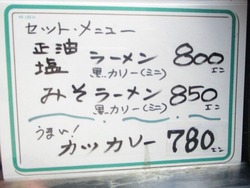 セット・メニュー
正油
塩 ラーメン 800エン
黒カリー(ミニ)
みそラーメン 850エン
黒カリー(ミニ)
うまい!
カツカレー 780エン